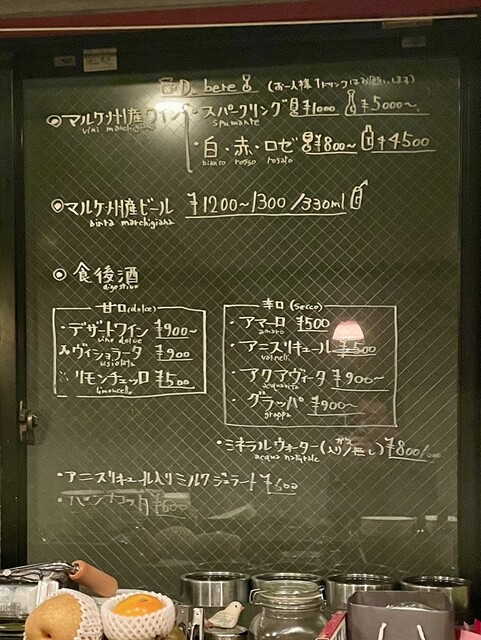 Da bere (お一人様1ドリンクはお願いします)
◎マルケ州産ワイン ・スパークリング ¥1000 ¥5000〜
vini marchigiani spumante
・白・赤・ロゼ ¥800〜 ¥4500
bianco rosso rosato
◎マルケ州産ビール ¥1200〜1300/330ml
birra marchigiana
◎食後酒
digestivo
甘口(dolce)
・デザートワイン ¥900〜
vino dolce
ヴィショラータ ¥900
visiolata
リモンチェッロ ¥500
limoncello
辛口(secco)
・アマーロ ¥500
amaro
・アニスリキュール ¥500
varnelli
・アクアヴィータ ¥900〜
acquavita
・グラッパ ¥900〜
grappa
・ミネラルウォーター(ガス入り/無し) ¥800
acqua naturale
・アニスリキュール入りミルクジェラート ¥600
・パンナコッタ ¥600